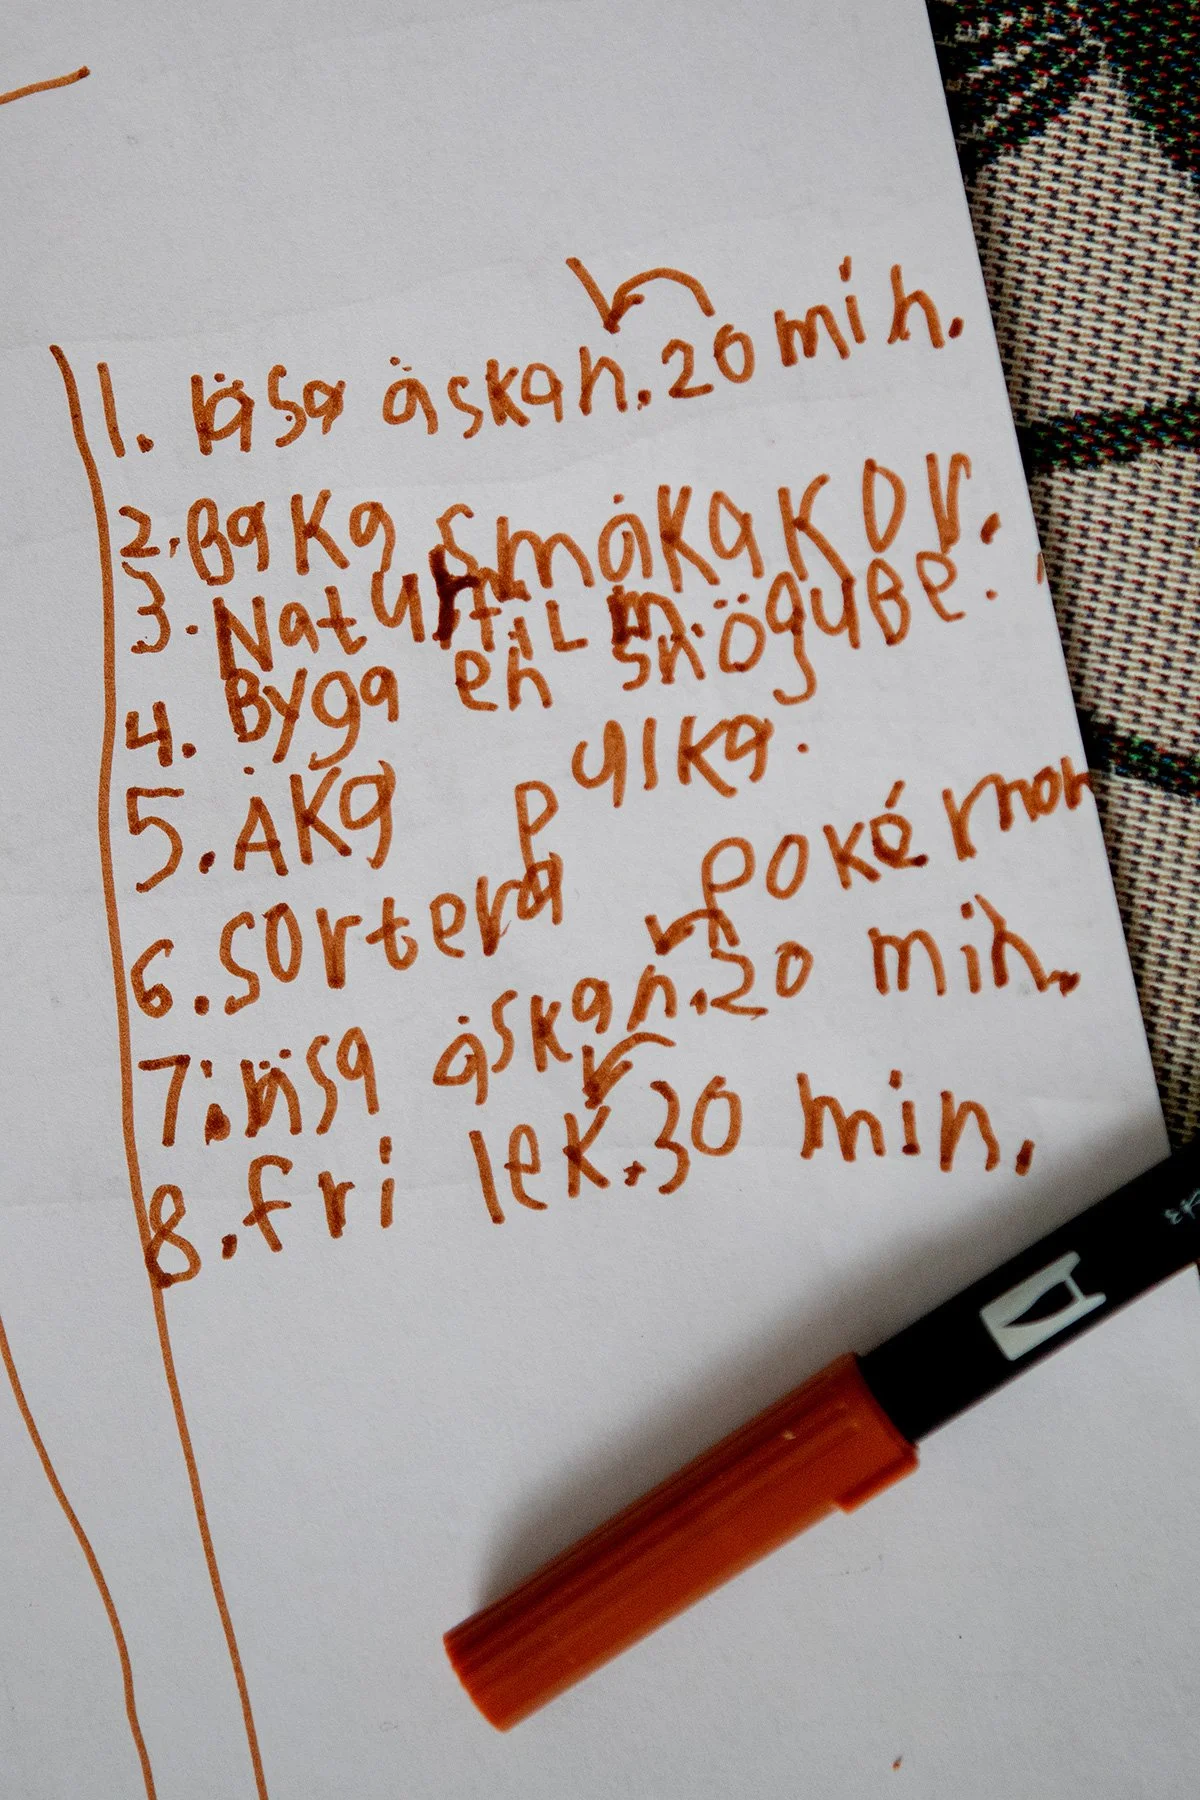 1. läsa åskan. 20 min.
2. Baka småkakor.
3. Naturfilm.
4. Byga en snögube.
5. Åka pulka.
6. Sortera pokémon
7. läsa åskan. 20 min.
8. fri lek. 30 min.